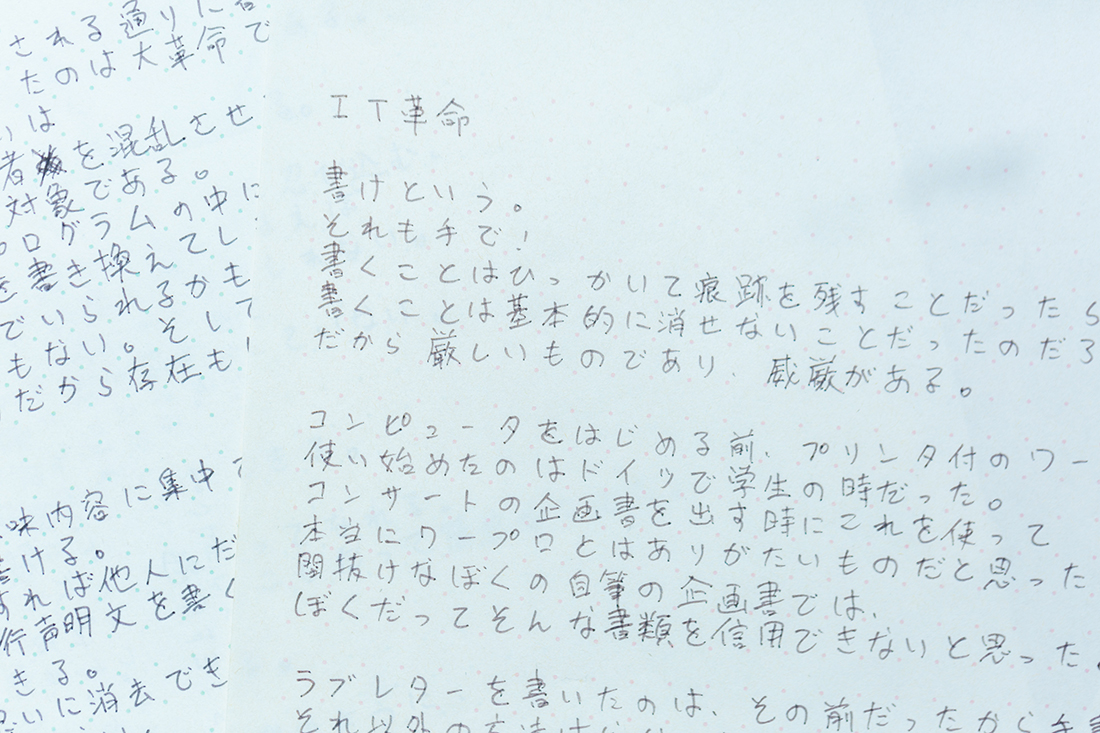 される通りに
たのは大革命で
いは
者を混乱させ
対象である。
ログラムの中に
を書き換えてし
でいられるかも
もない。そして
だから存在も
味内容に集中
書ける。
すれば他人にだ
行声明文を書く
きる。
いに消去でき
IT革命
書けという。
それも手で!
書くことはひっかいて痕跡を残すことだったら
書くことは基本的に消せないことだったのだろ
だから厳しいものであり、威厳がある。
コンピュータをはじめる前、プリンタ付のワー
使い始めたのはドイツで学生の時だった。
コンサートの企画書を出す時にこれを使って
本当にワープロとはありがたいものだと思った
間抜けなぼくの自筆の企画書では、
ぼくだってそんな書類を信用できないと思った。
ラブレターを書いたのは、その前だったから手
それ以外の方法